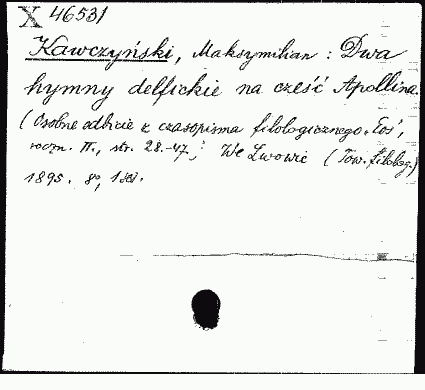 X 46531
Kawczyński, Maksymilian: Dwa
hymny delfickie na cześć Apollina.
(Osobne odbicie z czasopisma filologicznego „Eos",
roczn. II., str. 28.-47.; We Lwowie (Tow. filolog.)
1895. 8°, 1